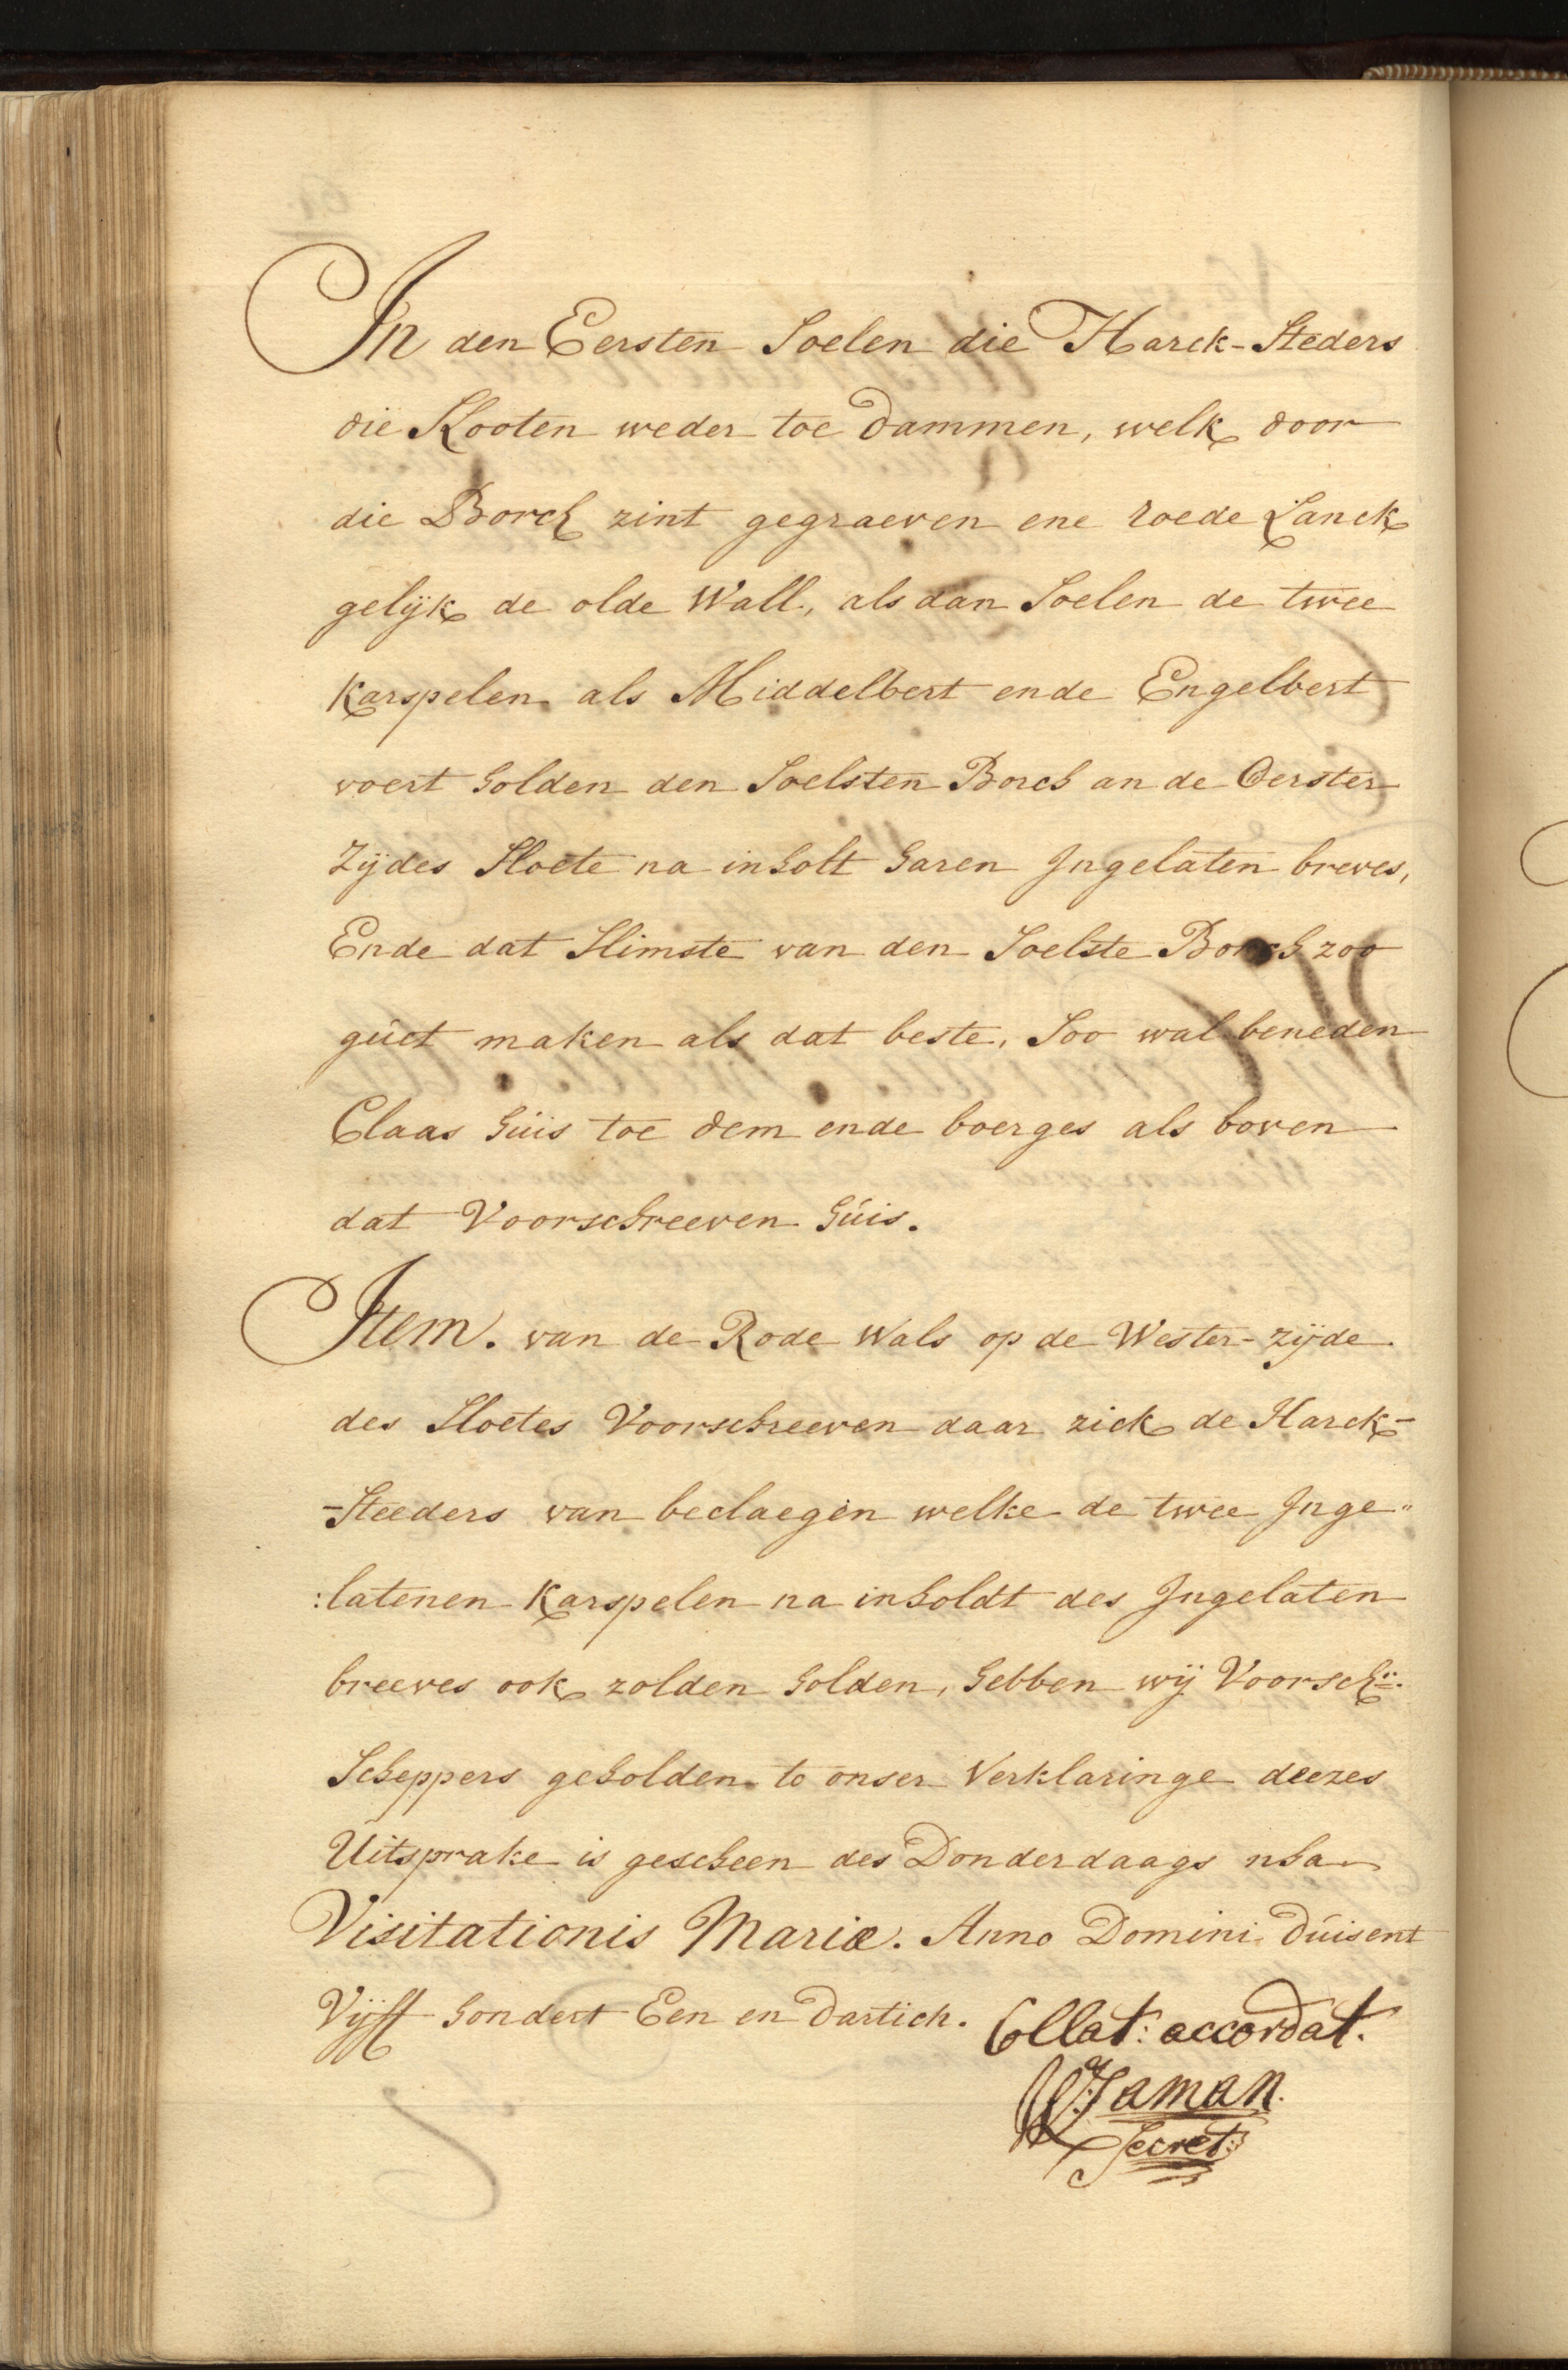 In den Eersten Soelen die Harck-Steders
die Slooten weder toe dammen, welk door
die Borch zint gegraeven ene roede Lanck
gelijk de olde Wall, als dan Soelen de twee
Karspelen als Middelbert ende Engelbert
voert holden den Soelsten Borch an de Oerster
Zijdes Sloete na inholt haren Ingelaten breves,
Ende dat Slimste van den Soelste Borch zoo
gúet maken als dat beste, Soo wal beneden
Claas húis toe dem ende boerges als boven
dat Voorschreeven húis.
Item. van de Rode Wals op de Wester-zijde
des Sloetes Voorschreeven daar zick de Harck-
-Steeders van beclaegen welke de twee Inge„
:latenen Karspelen na inholdt des Ingelaten
breeves ook zolden holden, hebben wij Voorsch:
Scheppers geholden to onser Verklaringe deezes
Uitsprake is gescheen des Donderdaags nha
Visitationis Mariæ. Anno Domini dúisent
Vijff hondert Een en dartich. Collat: accordat.
Jaman.
Secret: